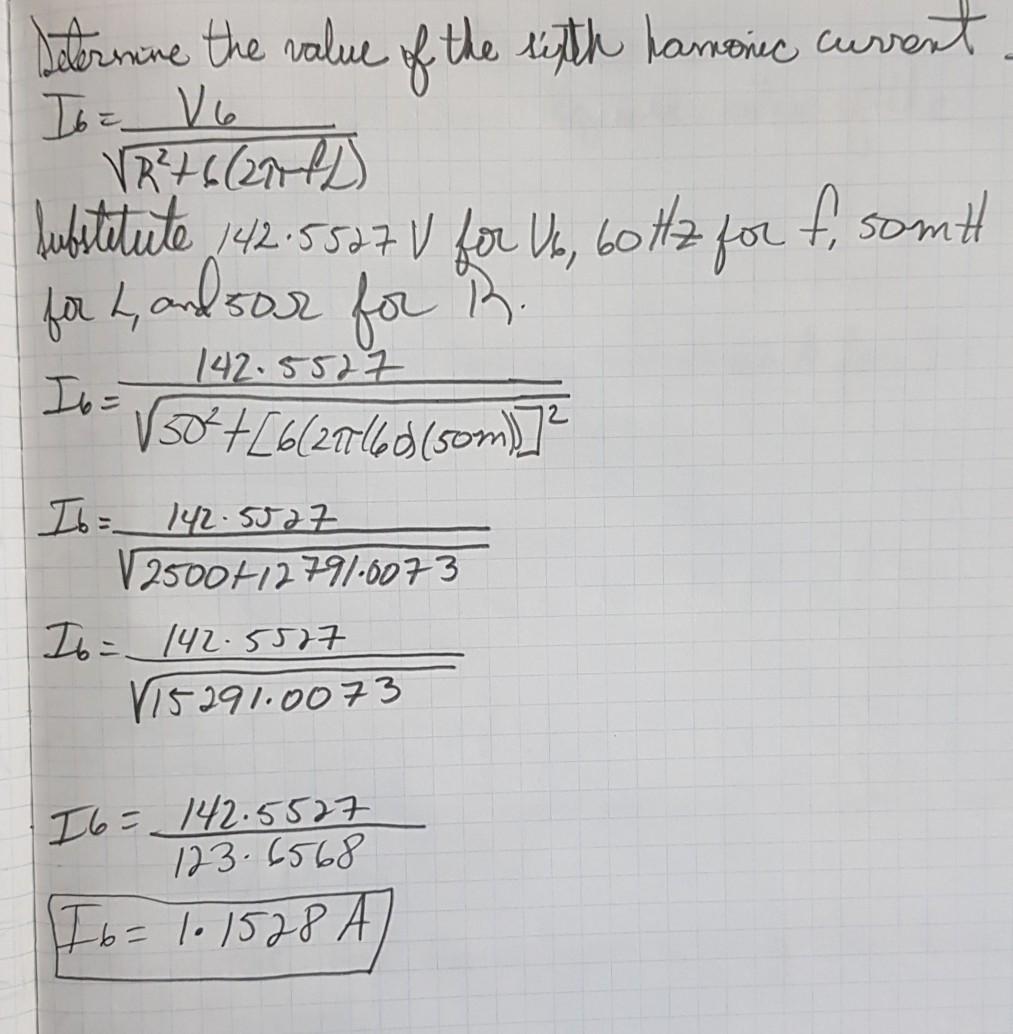 Determine the value of the sixth hamonic current.
I6 = V6
√R²+6(2πfL)
Substitute 142.5527 V for V6, 60 Hz for f, 50mH
for L, and 50Ω for R.
I6 = 142.5527
√50²+[6(2π(60)(50m))]²
I6 = 142.5527
√2500+12791.0073
I6 = 142.5527
√15291.0073
I6 = 142.5527
123.6568
I6 = 1.1528 A